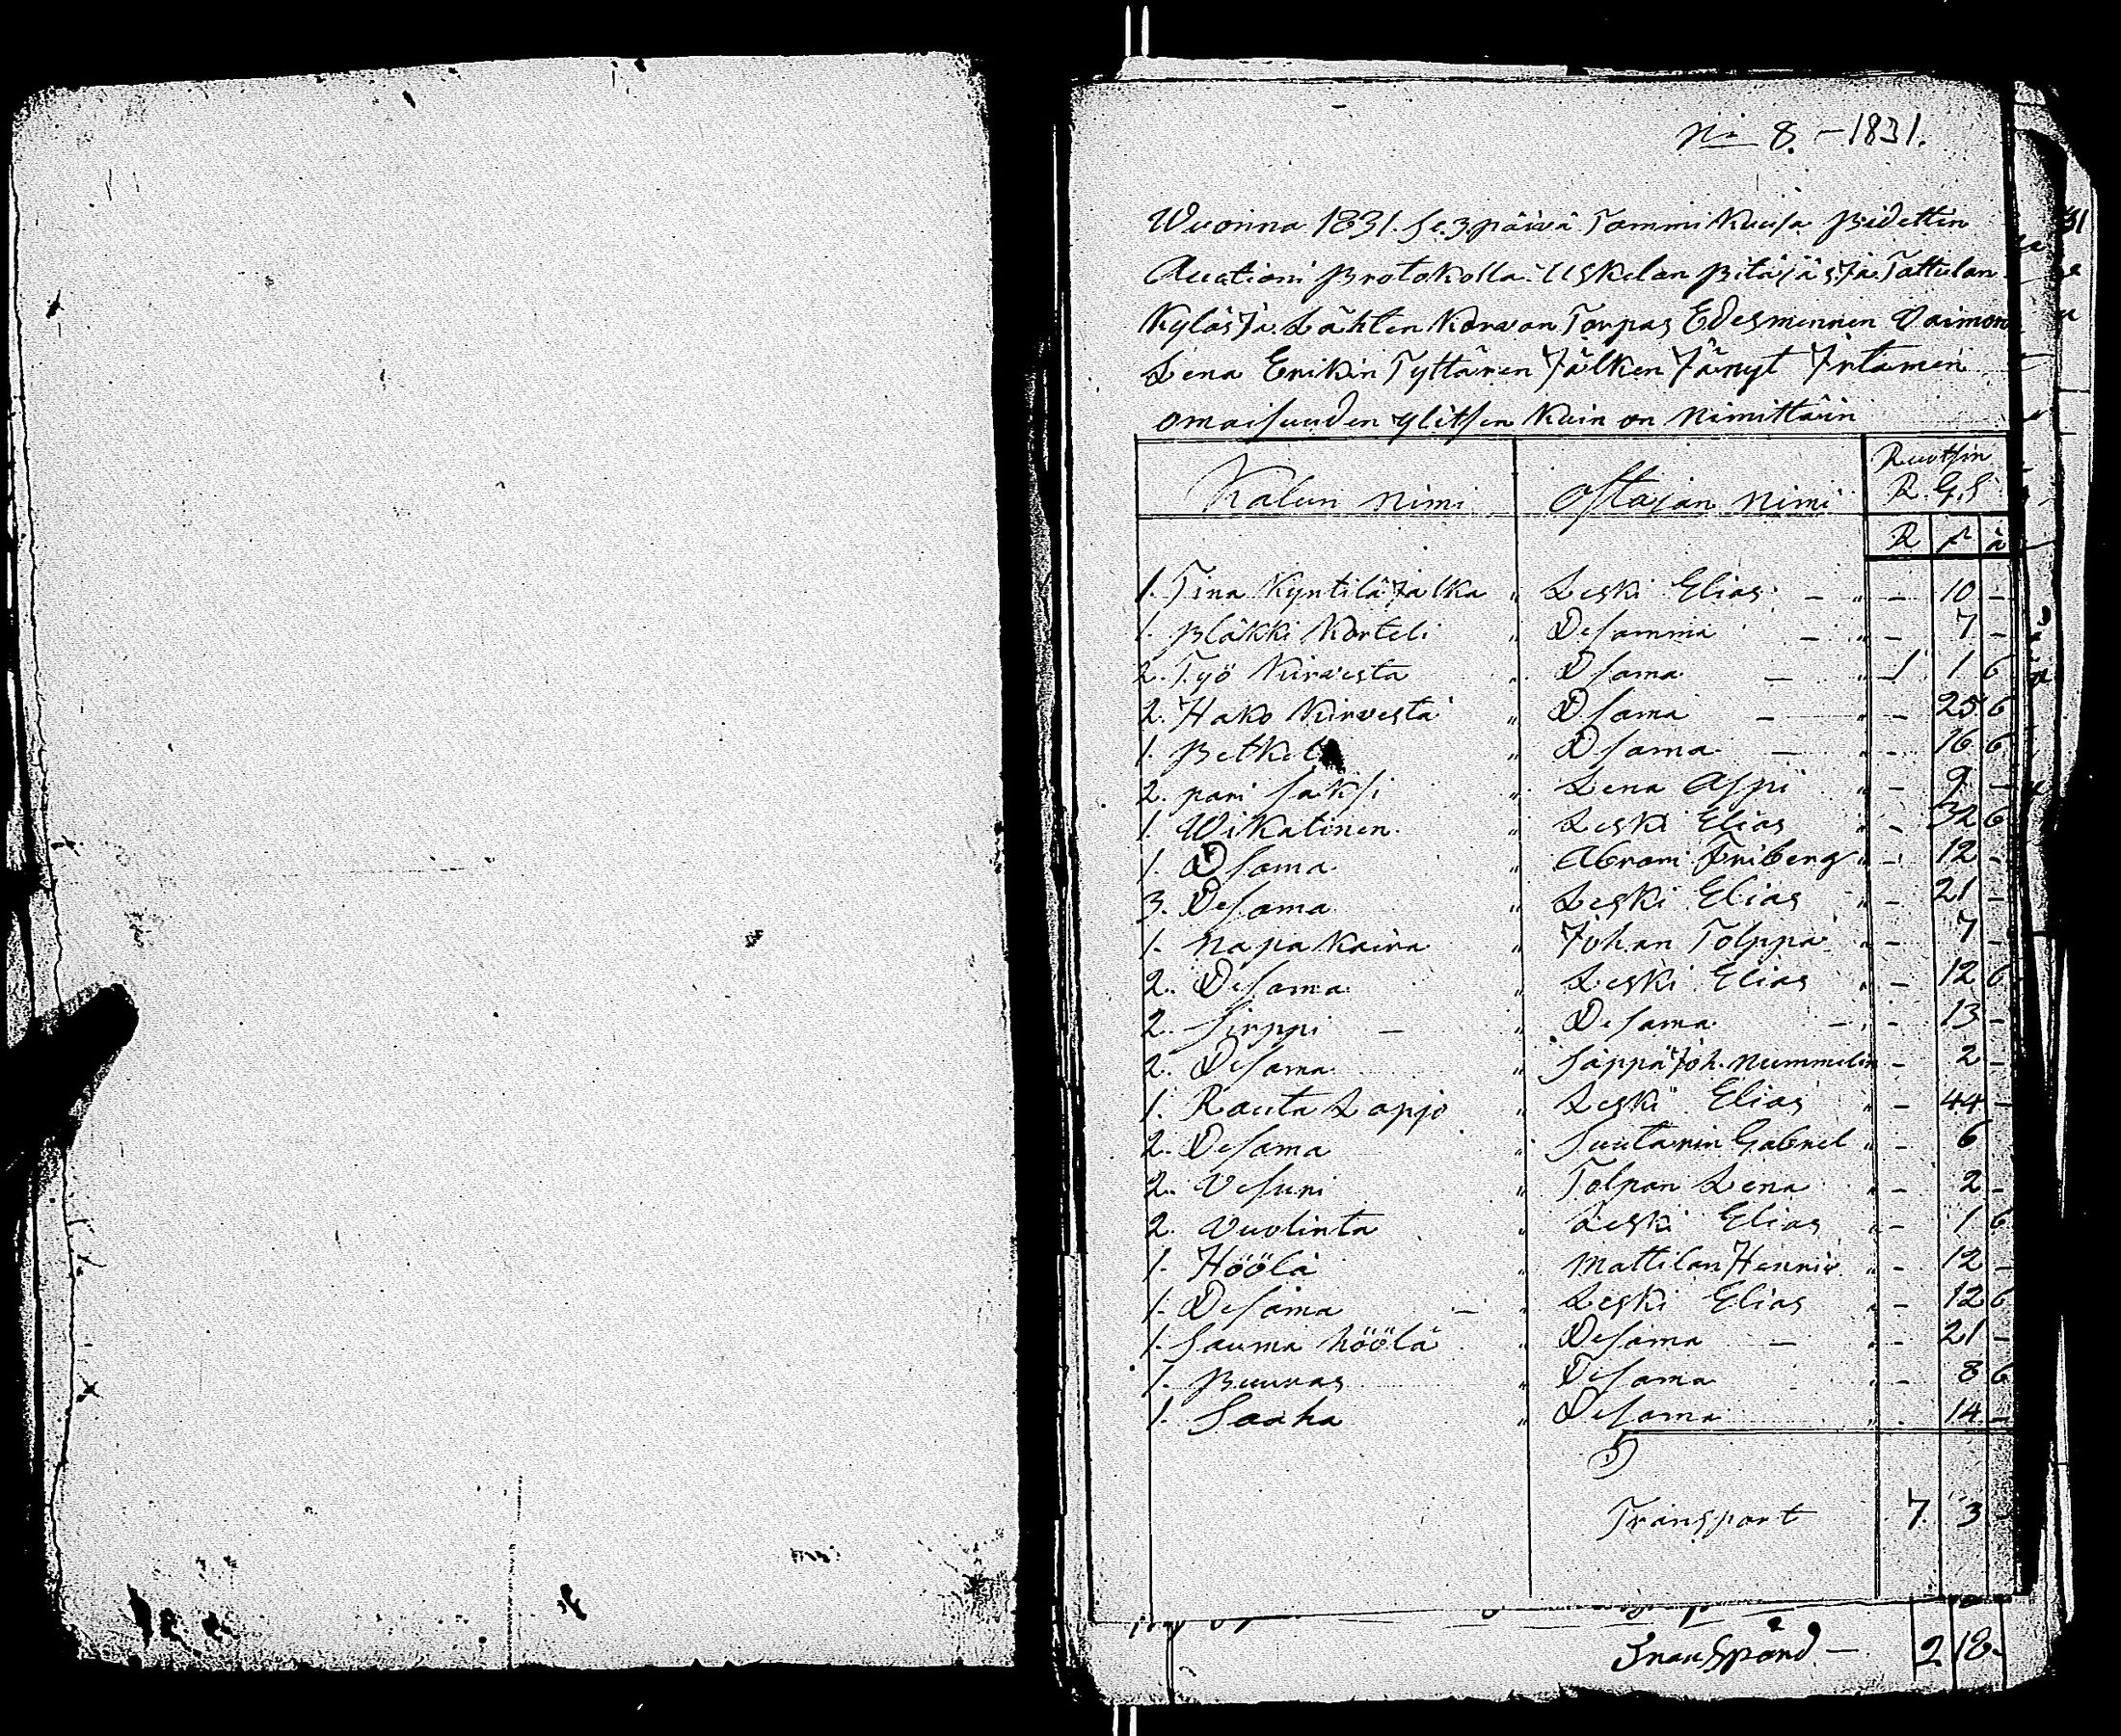 No 8. - 1831.
Wuonna 1831. se. 3 päivä Tammi Kuusa Pidettin
Auctioni Protokolla Uskelan Pitäjäsjä Tattulan
Kyläsjä Lähten Korvan Torpas Edesmennen Vaimon
Lena Erikin Tyttären Jälken Jänyt Irtamen
omaisuuden ylitsen Kuin on Nimittäin
Kalun nimi Ostajan nimi Ruotsin
R. G. S
R ß å
1. Tina Kyntilä Jalka " Leski Elias - " - 10 -
1. Pläkki Korteli " Desamma - " - 7 -
2. Työ Kirvesta " Dsama - " 1 1 6
2. Hako Kirvesta " Dsama - " - 25 6
1. Petkel " Dsama - " - 16 6
2. pari saksi " Lena Aspi " - 9 -
1. Wikatinen " Leski Elias " - 32 6
1. Dsama " Abram Friberg " - 12 -
3. Desama " Leski Elias " - 21 -
1. Napa Kaira " Johan Tolppa " - 7 -
2. Desama " Leski Elias " - 12 6
2. Sirppi - " Desama - " - 13 -
2. Desama " Säppä Joh. Nummelin - 2 -
1. Rauta Lapjo " Leski Elias " - 44 -
2. Desama " Suutarin Gabriel " - 6
2. Vesuri " Tolpan Lena " - 2 -
2. Vuolinta " Leski Elias " - 1 6
1. Höölä " Mattilan Henric " - 12 -
1. Desama - " Leski Elias " - 12 6
1. Sauma höölä " Desama - " - 21 -
1. Puuras " Desama " - 8 6
1. Saaha " Desama " - 14 -
Transport 7 3 -
Transpord - 2 18 -